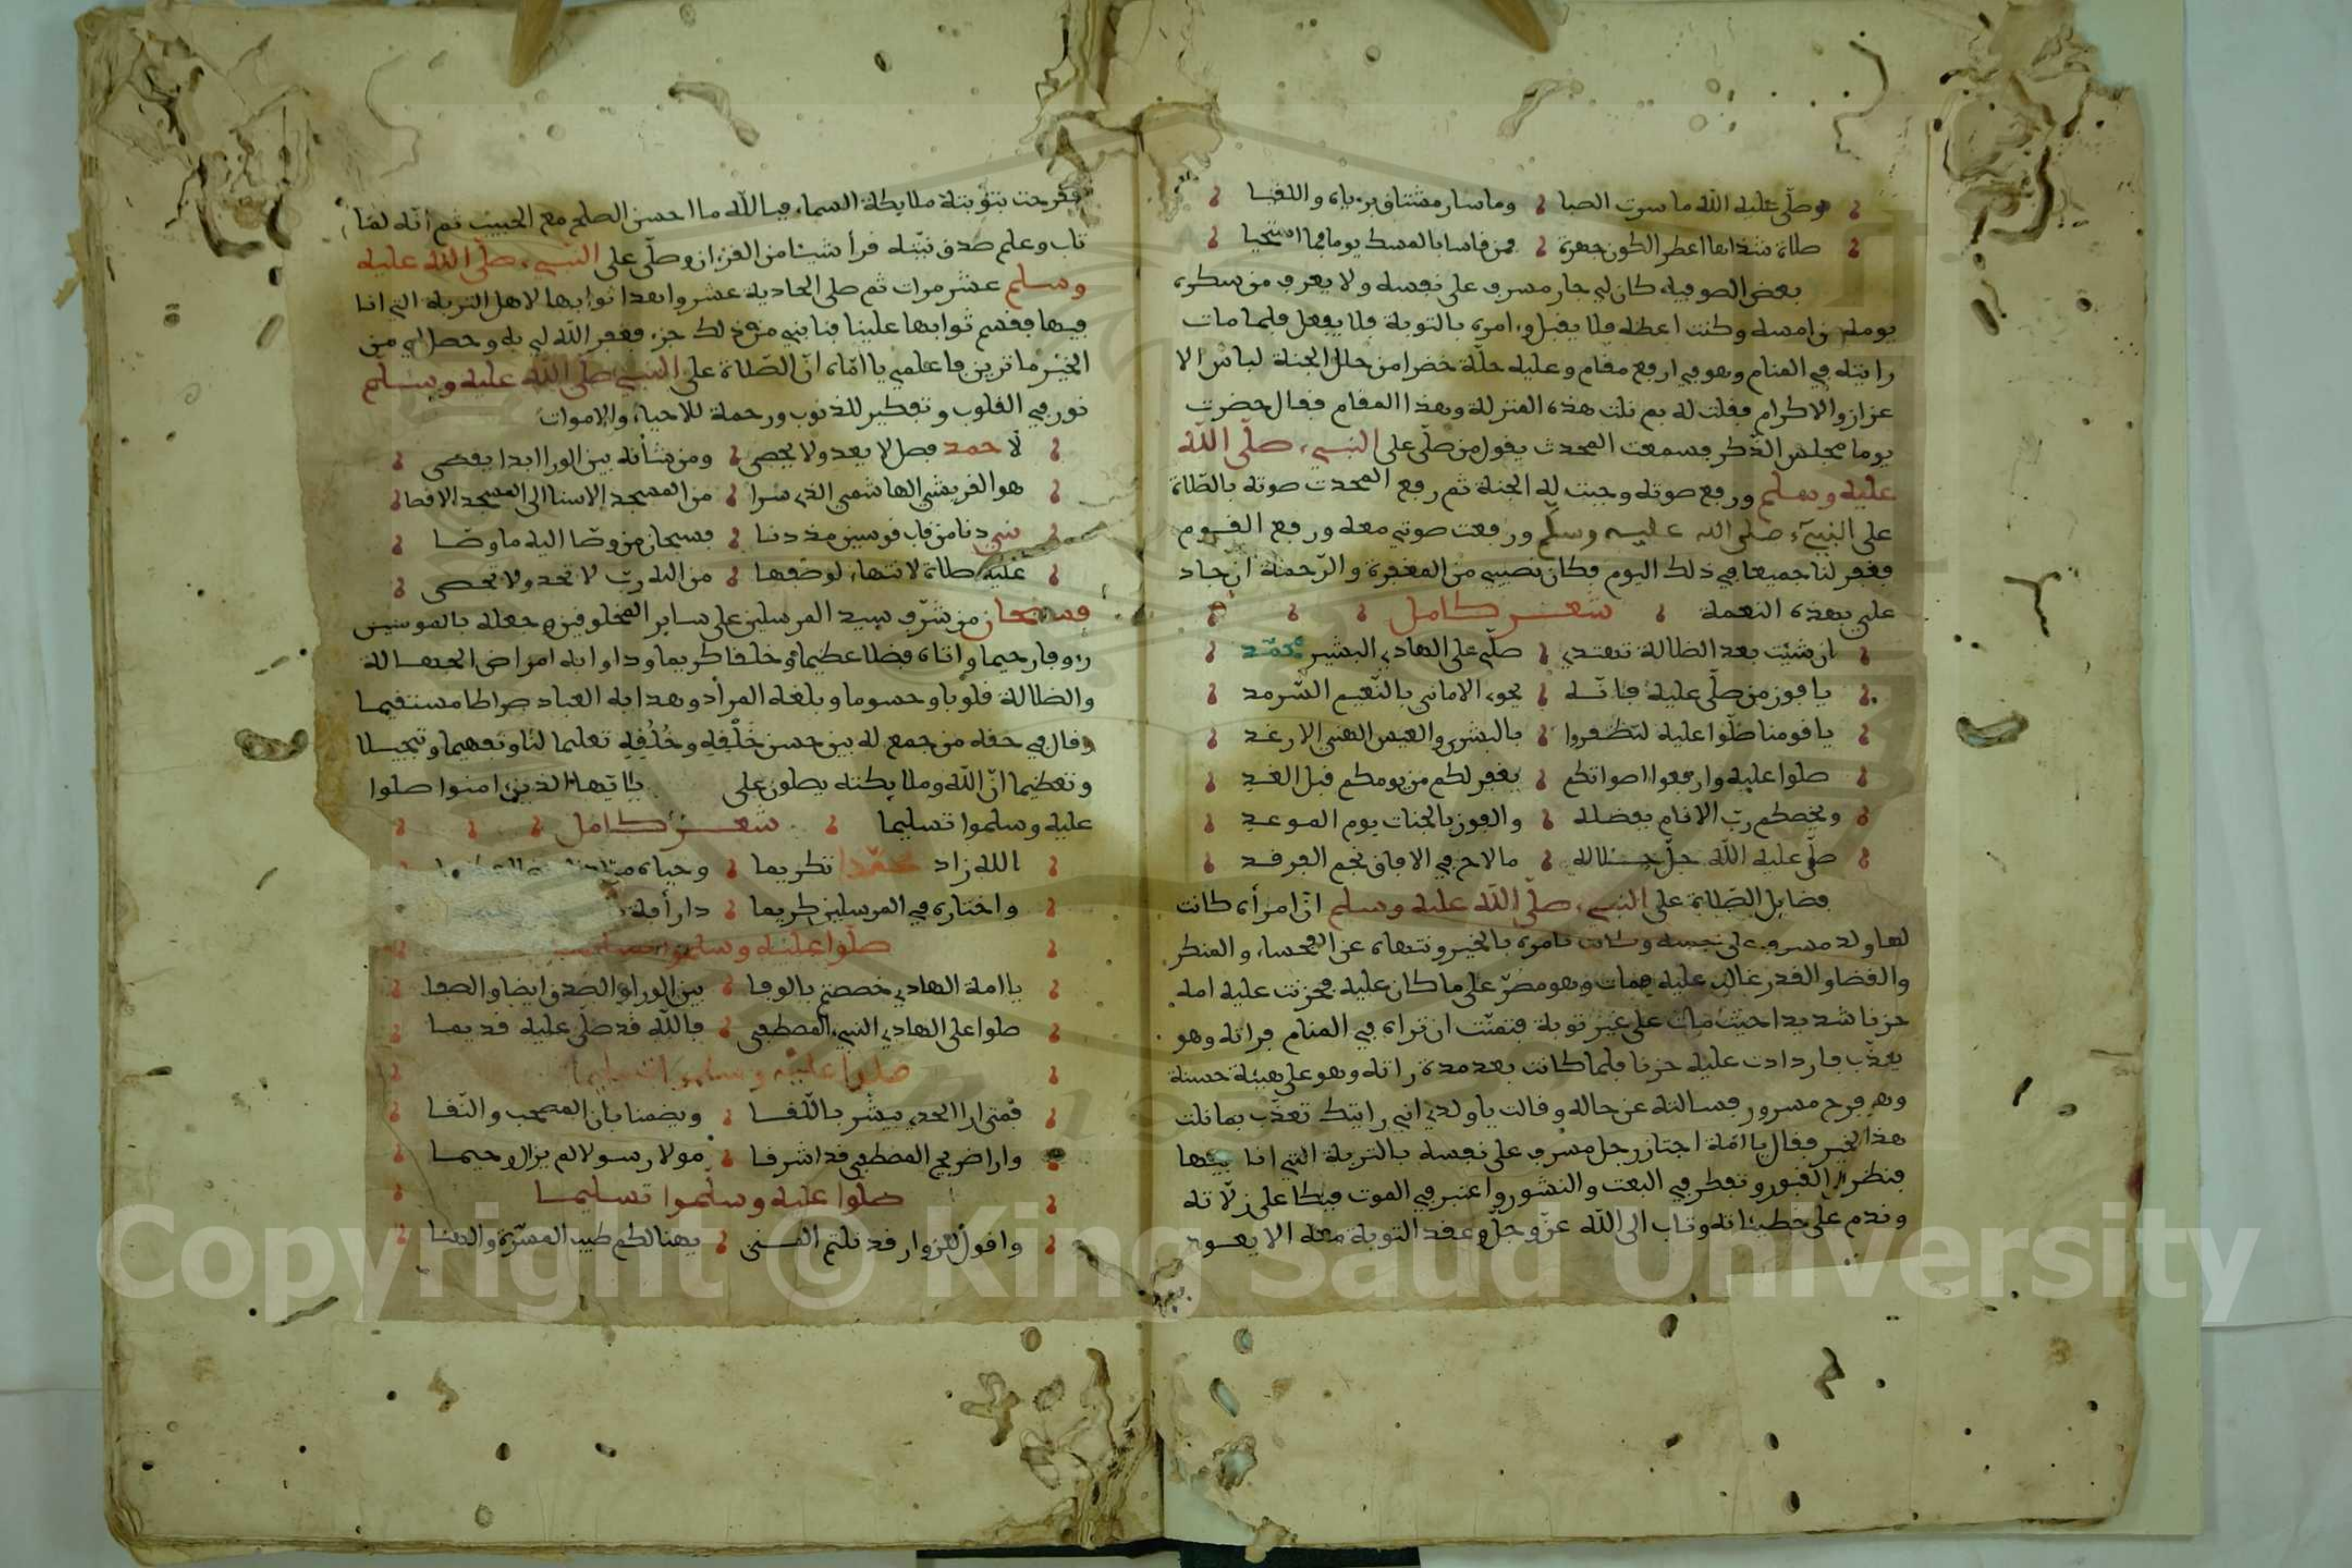 وصلى عليه الله ما سرت الصبا وما سار مشتاق
صلاة شذاها اعطر الكون جهرة فمن قاسها بالمسك يوما فما استحيا
بعض الصوفية كان لي جار مسرف على نفسه ولا يعرف من سكره
يومه من امسه وكنت اعظه فلا يقبل وءامره بالتوبة فلا يفعل فلما مات
رايته في المنام وهو في ارفع مقام وعليه حلة خضرا من حلل الجنة لباس الا
عزاز والاكرام فقلت له بم نلت هذه المنزلة وهذا المقام فقال حضرت
يوما مجلس الذكر فسمعت المحدث يقول من صلى على النبيء صلى الله
عليه وسلم ورفع صوته وجبت له الجنة ثم رفع المحدث صوته بالصلاة
على النبيء صلى الله عليه وسلم ورفعت صوتي معه ورفع القوم
فغفر لنا جميعا في ذلك اليوم فكان نصيبي من المغفرة والرحمة ان جاد
علي بهذه النعمة شعر كامل
ان شئت بعد الضلالة تهتدي صلي على الهادي البشير محمد
يا فوز من صلى عليه فانه يحوي الاماني بالنعيم السرمد
يا قومنا صلوا عليه لتظفروا بالبشرى والعيش الهني الارغد
صلوا عليه وارفعوا اصواتكم يغفر لكم من يومكم قبل الغد
ويخصكم رب الانام بفضله والفوز بالجنات يوم الموعد
صلى عليه الله جل جلاله ما لاح في الافاق نجم الفرقد
فضايل الصلاة على النبيء صلى الله عليه وسلم ان امرأة كانت
لها ولد مسرف على نفسه وكانت تامره بالخير وتنهاه عن الفحشاء والمنكر
والقضا والقدر غالب عليه فمات وهو مصر على ما كان عليه فحزنت عليه امه
حزنا شديدا حيث مات على غير توبة فتمنت ان تراه في المنام فراته وهو
يعذب فازدادت عليه حزنا فلما كانت بعد مدة راته وهو على هيئة حسنة
وهو فرح مسرور فسالته عن حاله وقالت يا ولدي اني رايتك تعذب بما نلت
هذا الخير فقال يا امه اجتاز رجل مسرف على نفسه بالتربة التي انا فيها
فنظر الى القبور وتفكر في البعث والنشور واعتبر في الموت فبكا على زلاته
وندم على خطيئاته وتاب الى الله عز وجل وعقد التوبة معه الا يعود
ففرحت بتوبته ملايكة السماء فيا لله ما احسن الصلح مع الحبيب ثم انه لما
تاب وعلم صدق نيته قرأ شيئا من القرءان وصلى على النبيء صلى الله عليه
وسلم عشر مرات ثم صلى الحادية عشر واهدا ثوابها لاهل التربة التي انا
فيها فقسم ثوابها علينا فنابني من ذلك جزء فغفر الله لي به وحصل لي من
الخير ما ترين فاعلمي يا اماه ان الصلاة على النبيء صلى الله عليه وسلم
نور في القلوب وتكفير للذنوب ورحمة للاحياء والاموات
لاحمد فضل لا يعد ولا يحصى ومن شأنه بين الورا ابدا يقصى
هو القريشي الهاشمي الذي سرا من المسجد الاسنا الى المسجد الاقصا
نبي دنا من قاب قوسين مذ دنا فسبحان من وصا اليه ما وصا
عليه صلاة لا انتهاء لوصفها من الله رب لا تحد ولا تحصى
فسبحان من شرف سيد المرسلين على ساير المخلوقين وجعله بالمومنين
رءوفا رحيما واتاه فضلا عظيما وخلقا كريما وداوا به امراض الجهالة
والضلالة قلوبا وجسوما وبلغه المراد وهدا به العباد صراطا مستقيما
وقال في حقه من جمع له بين حسن خلقه وخلقه تعليما لنا وتفهيما وتبجيلا
وتعظيما ان الله وملايكته يصلون على يا ايها الذين امنوا صلوا
عليه وسلموا تسليما شعر كامل
الله زاد محمدا تكريما وحباه
واختاره في المرسلين كريما ذا رأفة
صلوا عليه وسلموا تسليما
يا امة الهادي خصصتم بالوفا بين الورا والصدق ايضا والصفا
صلوا على الهادي النبيء المصطفى فالله قد صلى عليه قديما
صلوا عليه وسلموا تسليما
فمتى ارا الحدي يبشر باللقا ويضمنا بان المحصب والنقا
وارا ضريح المصطفى قد اشرقا مولا رسولا لم يزل رحيما
صلوا عليه وسلموا تسليما
واقول للزوار قد نلتم المنى يهنا لكم طيب المسرة والهنا
Copyright © King Saud University